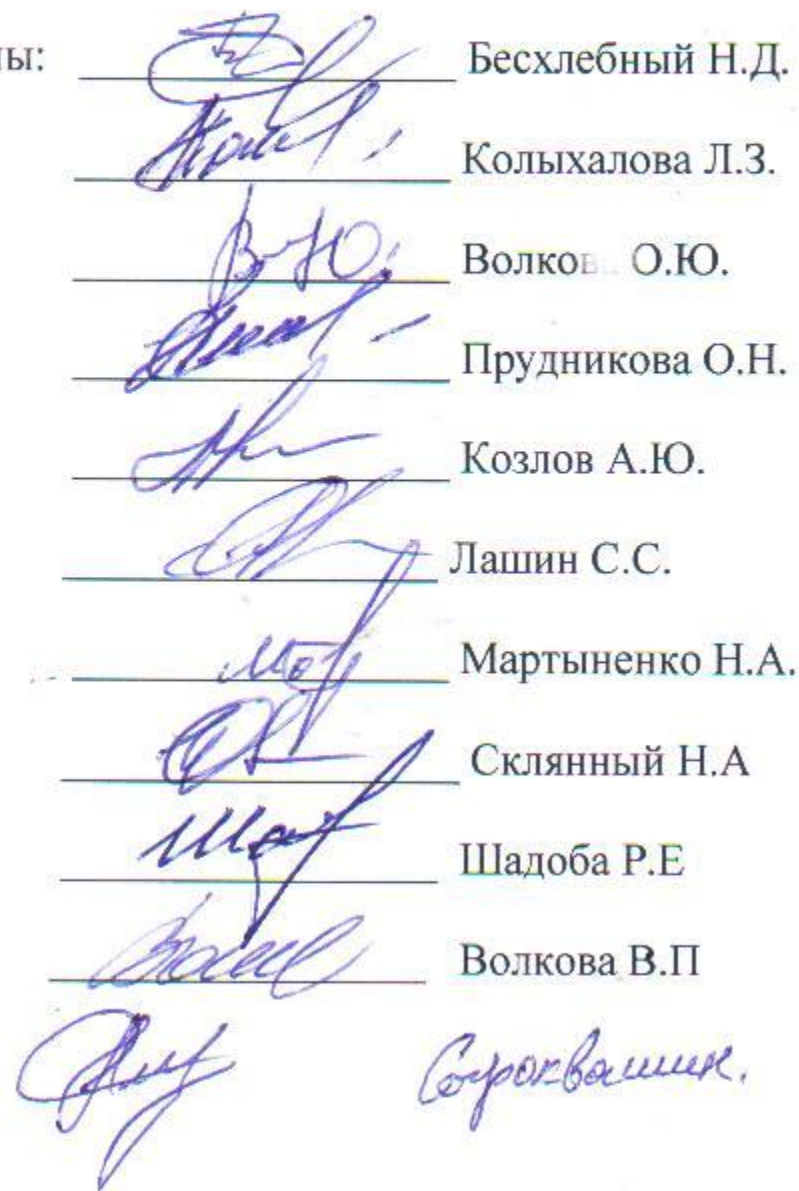 ны:
Бесхлебный Н.Д.
Колыхалова Л.З.
Волков О.Ю.
Прудникова О.Н.
Козлов А.Ю.
Лашин С.С.
Мартыненко Н.А.
Склянный Н.А
Шадоба Р.Е
Волкова В.П